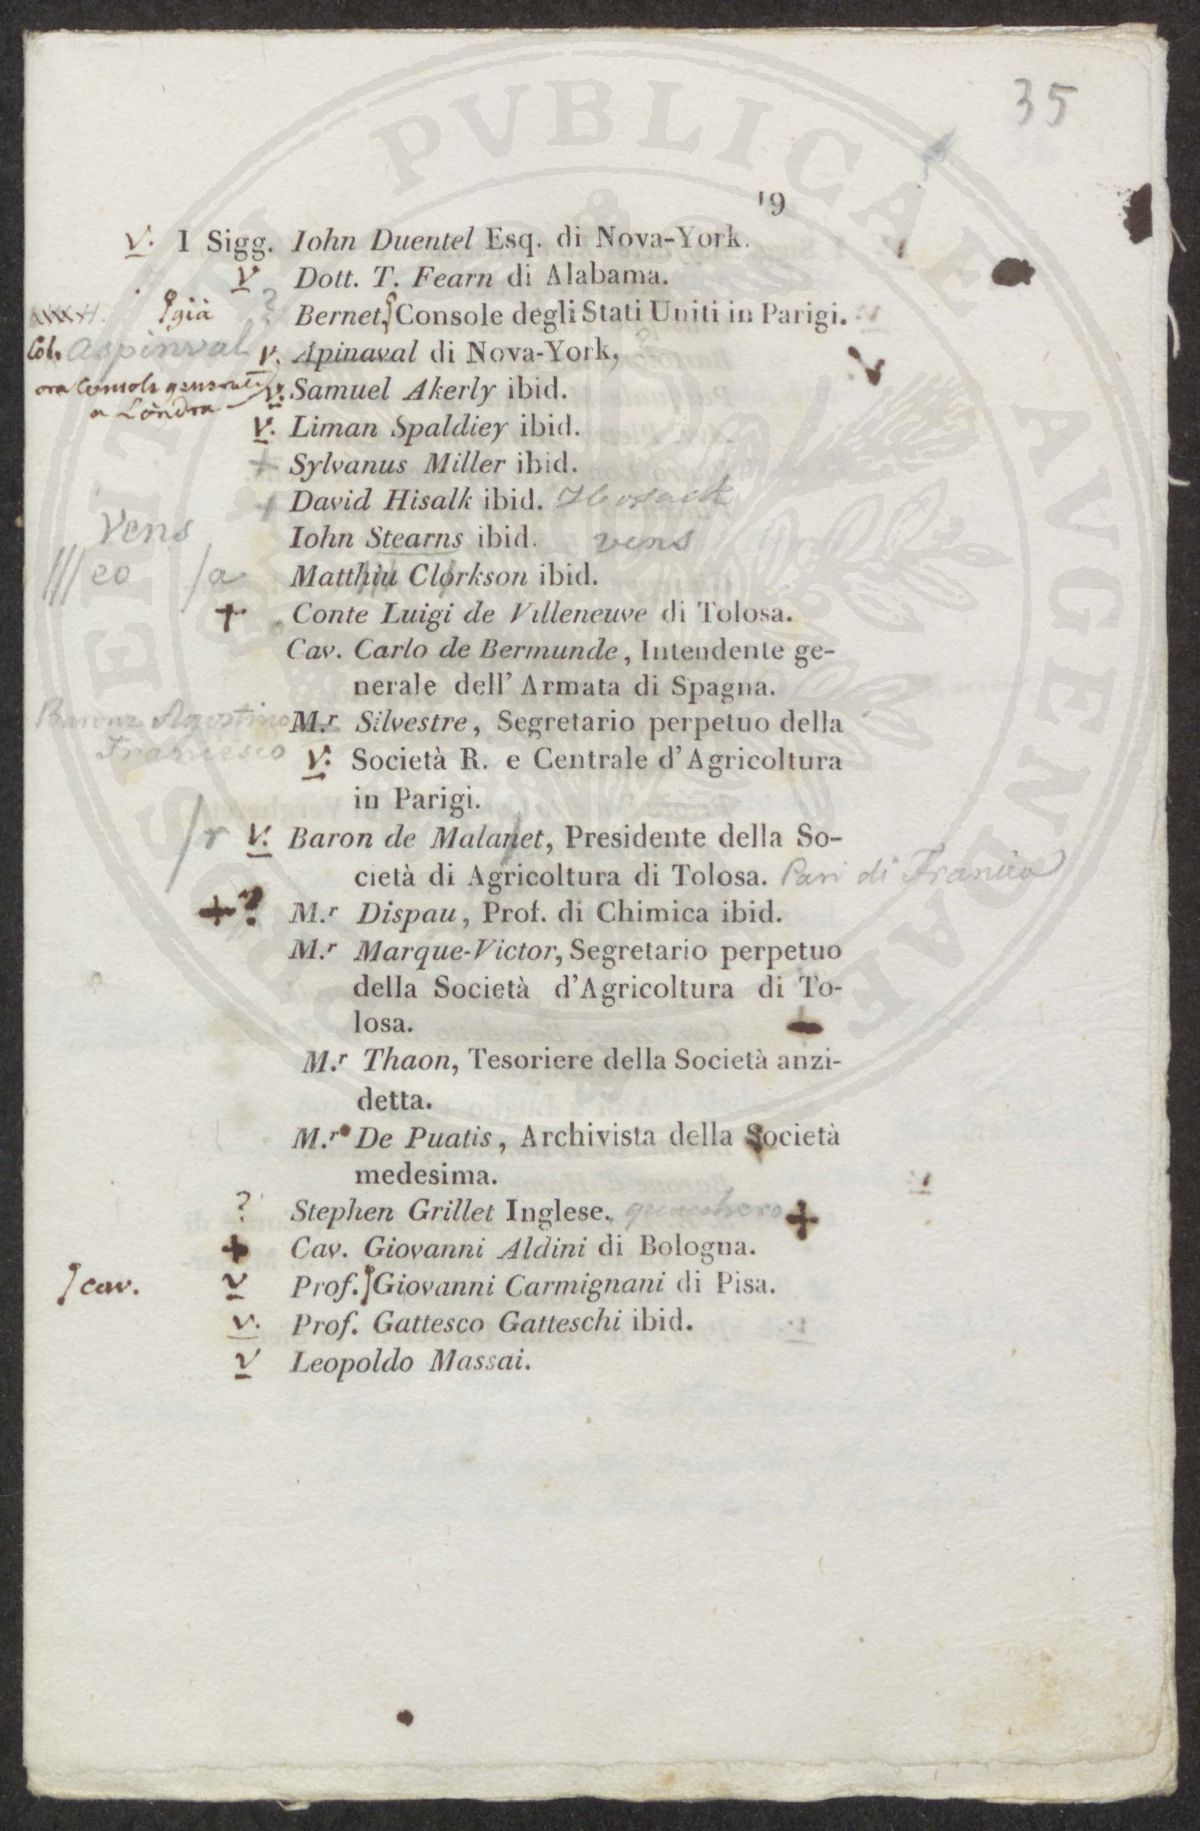 35
19
v. I Sigg. Iohn Duentel Esq. di Nova-York.
v Dott. T. Fearn di Alabama.
già ? Bernet, Console degli Stati Uniti in Parigi.
Col. Aspinval v. Apinaval di Nova-York,
ora Console generale v. Samuel Akerly ibid.
a Londra
v. Liman Spaldiey ibid.
+ Sylvanus Miller ibid.
+ David Hisalk ibid. Hosack
Vens Iohn Stearns ibid. vens
///eo /a Matthiu Clorkson ibid.
+ Conte Luigi de Villeneuve di Tolosa.
Cav. Carlo de Bermunde, Intendente ge-
nerale dell' Armata di Spagna.
Barone Agostino M.r Silvestre, Segretario perpetuo della
Francesco v. Società R. e Centrale d'Agricoltura
in Parigi.
/r v. Baron de Malanet, Presidente della So-
cietà di Agricoltura di Tolosa. Pari di Francia
+? M.r Dispau, Prof. di Chimica ibid.
M.r Marque-Victor, Segretario perpetuo
della Società d'Agricoltura di To-
losa.
M.r Thaon, Tesoriere della Società anzi-
detta.
M.r De Puatis, Archivista della Società
medesima.
? Stephen Grillet Inglese. quacchero +
+ Cav. Giovanni Aldini di Bologna.
cav. v Prof. Giovanni Carmignani di Pisa.
v. Prof. Gattesco Gatteschi ibid.
v Leopoldo Massai.
PVBLICAE
AVGENDAE